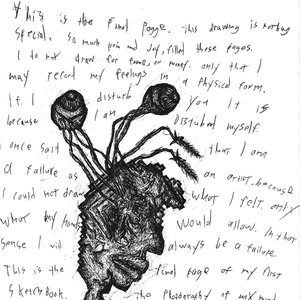 This is the final page. This drawing is nothing
special. So much pain and joy, filled these pages.
I do not draw for fame, or money. only that I
may record my feelings in a physical form.
If I disturb you It is
because I am Distubed myself.
I once said that I am
a failure as an artist, because
I could not draw what I felt, only
what my hands would allow. In that
sense I will always be a failure.
This is the final page of my first
Sketchbook. The photography of my